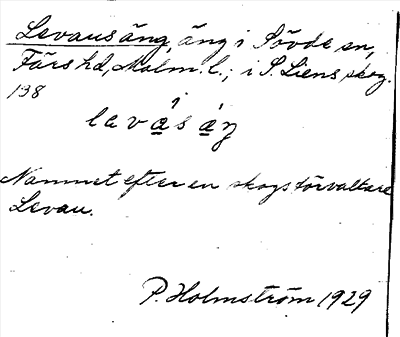 Levausäng, äng i Sövde sn,
Färs hd, Malm. l.; i S. Liens skog.
138
levasaŋ
Namnet efter en skogsförvaltare
Levau.
P. Holmström 1929